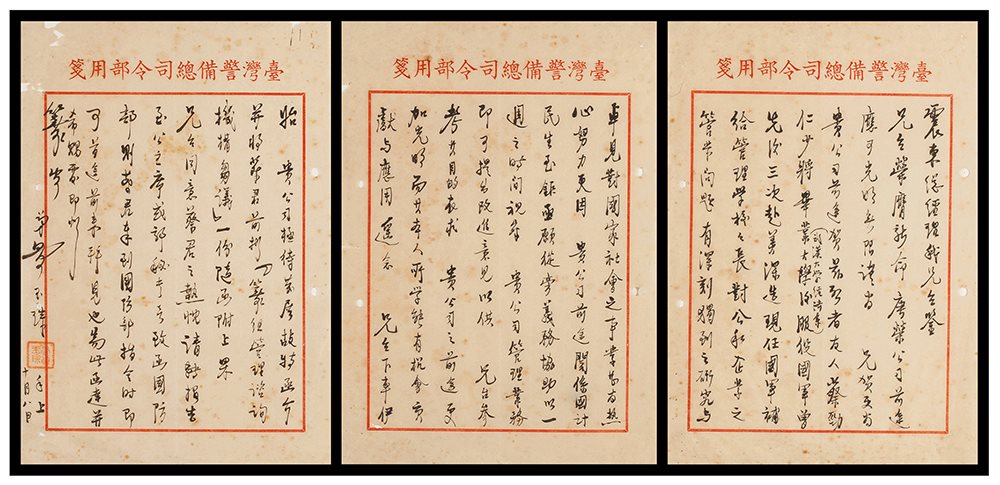 臺灣警備總司令部用箋
震東總經理我兄台鑒
兄台榮膺新命唐榮公司前途
應可光明無限謹為 兄賀更為
貴公司前途賀茲啟者友人蔡勁
仁少將畢業大學後服役國軍曾
武漢大學經濟系
先後三次赴美深造現任國軍補
給管理學校校長對公私企業之
管帶問題有深刻獨到之研究與
臺灣警備總司令部用箋
卓見對國家社會之事業尤為熱
心努力更因 貴公司前途關係國計
民生至鉅亟願從旁義務協助以一
週之時間視察 貴公司管理業務
即可提出改進意見以供 兄台參
考其目的在求 貴公司之前途更
加光明而其本人所學能有機會貢
獻與應用 念 兄台下車伊
臺灣警備總司令部用箋
始 貴公司極待發展故特函介
並將蔡君前擬「籌組管理諮詢
機構芻議」一份隨函附上如果
兄台同意蔡君之熱忱請賜
部秘書 致函國防
部則蔡君奉到國防部指令時即
可首途前來拜見也耑此函達並
希賜察即頌
籌安
弟 手上
十月八日